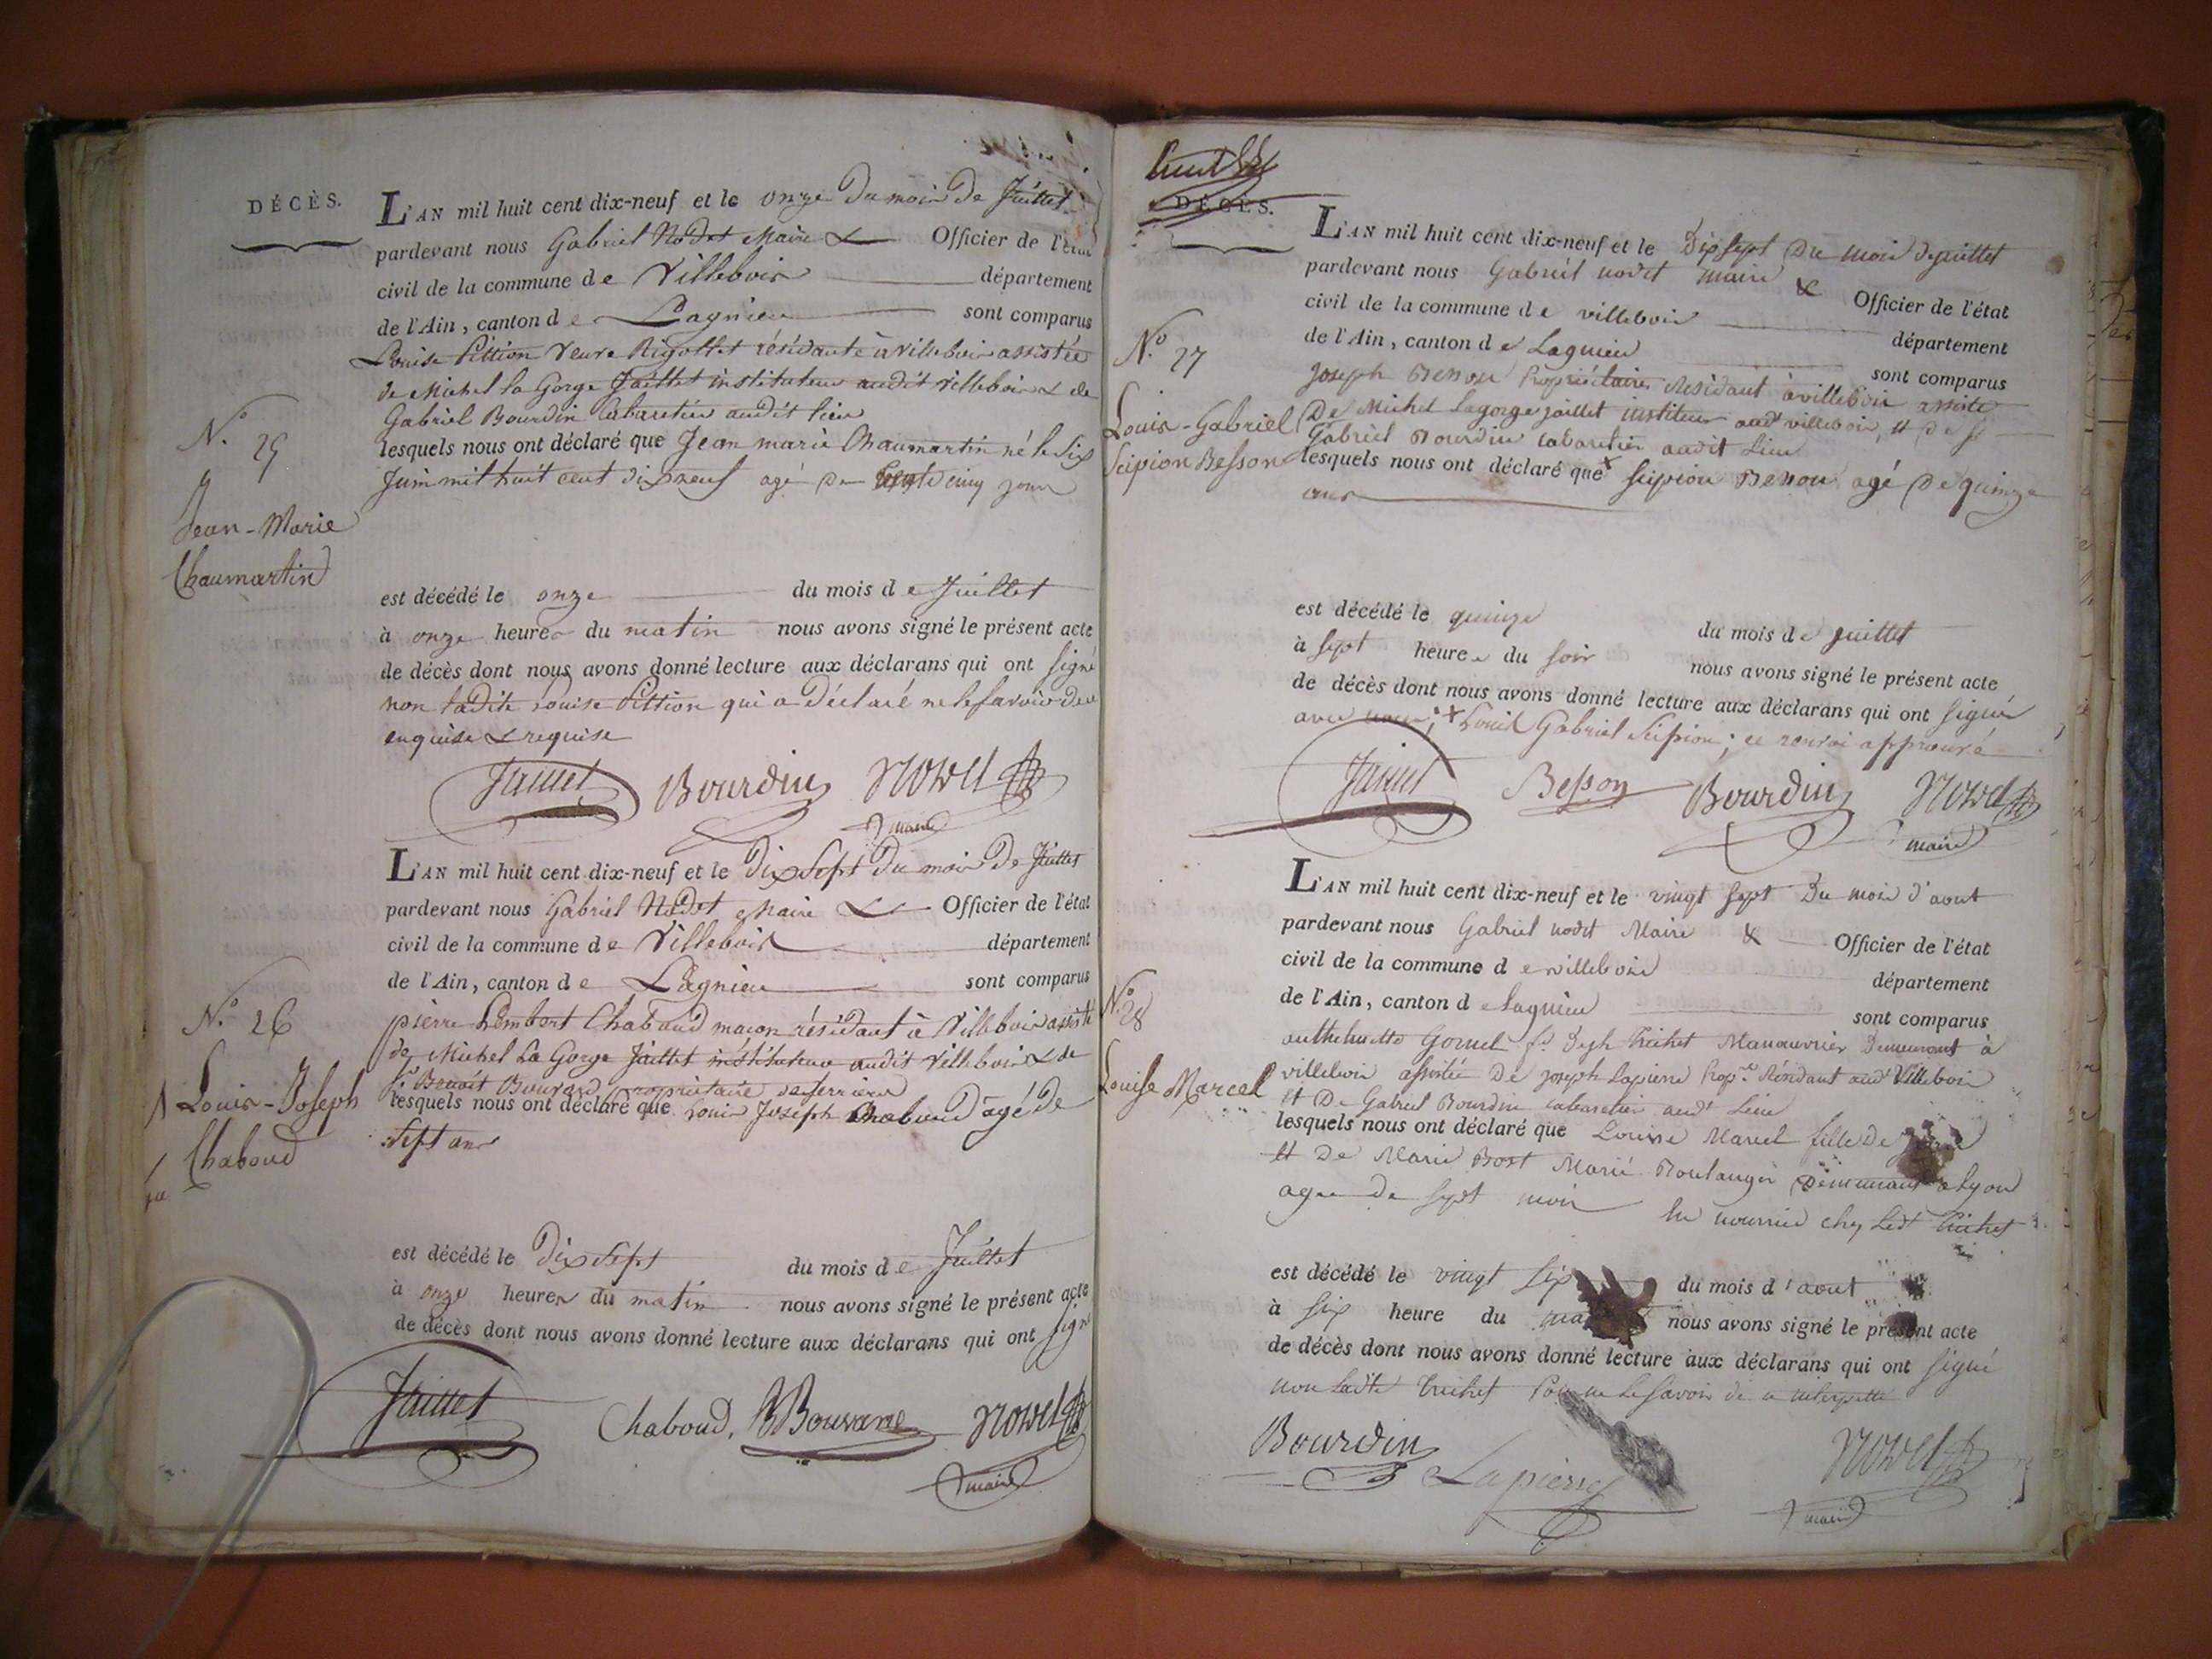 DÉCÈS.
L'AN mil huit cent dix-neuf et le onze du mois de Juillet
pardevant nous Gabriel Nodet Maire & Officier de l'état
civil de la commune de Villebois département
de l'Ain, canton de Lagnieu sont comparus
Louise Pittion Veuve Rigollet résidante à Villebois assistée
de Michel la Gorge Jaillet instituteur audit villebois & de
Gabriel Bourdin Cabaretier audit lieu
lesquels nous ont déclaré que Jean marie Chaumartin né le six
Juin mil huit cent dix neuf agé de cinq jours
N.° 25
Jean-Marie
Chaumartin
est décédé le onze du mois de Juillet
à onze heures du matin nous avons signé le présent acte
de décès dont nous avons donné lecture aux déclarans qui ont signé
non ladite Louise Pittion qui a Déclaré ne le savoir de ce
enquise & requise
Jaillet Bourdin Nodet
maire
L'AN mil huit cent dix-neuf et le Dix Sept Du mois De Juillet
pardevant nous Gabriel Nodet Maire & Officier de l'état
civil de la commune de Villebois département
de l'Ain, canton de Lagnieu sont comparus
N.° 26
Louis-Joseph
Chaboud
pierre Lembert Chaboud maçon résidant à Villebois assisté
de Michel La Gorge Jaillet instituteur audit Villebois & de
Sr. Benoit Bouvard propriétaire
lesquels nous ont déclaré que Louis Joseph Chaboud agé de
Sept ans
est décédé le Dix Sept du mois de Juillet
à onze heures du matin nous avons signé le présent acte
de décès dont nous avons donné lecture aux déclarans qui ont signé
Jaillet Chaboud, Nodet
maire
DÉCÈS.
L'AN mil huit cent dix-neuf et le Dix sept Du mois de juillet
pardevant nous Gabriel nodet maire & Officier de l'état
civil de la commune de villebois département
de l'Ain, canton de Lagnieu sont comparus
N.° 27
Louis-Gabriel
Scipion Besson
Joseph Besson Propriétaire Résidant à villebois assisté
De Michel Lagorge jaillet institeur audt villebois, et de Sr
Gabriel Bourdin cabaretier audit Lieu
lesquels nous ont déclaré que + Scipion Besson agé De quinze
ans
est décédé le quinze du mois de juillet
à sept heures du soir nous avons signé le présent acte
de décès dont nous avons donné lecture aux déclarans qui ont signés
avec nous; + Louis Gabriel Scipion; ce renvoi approuvé
Jaillet Besson Bourdin Nodet
maire
L'AN mil huit cent dix-neuf et le vingt sept Du mois d'aout
pardevant nous Gabriel nodet Maire & Officier de l'état
civil de la commune de villebois département
de l'Ain, canton de Lagnieu sont comparus
N.° 28
Louise Marcel
Manouvrier Demeurant à
villebois assistée De joseph Lapierre Résidant audt Villebois
et De Gabriel Bourdin cabaretier audt Lieu
lesquels nous ont déclaré que Louise Marcel fille De
et De Marie Bost Marié Boulanger Demeurant a Lyon
agée de sept mois en nourrice chez Ledt
est décédé le vingt six du mois d'aout
à six heure du nous avons signé le présent acte
de décès dont nous avons donné lecture aux déclarans qui ont signé
non Ladte pour ne le savoir de ce
Bourdin Lapierre Nodet
maire